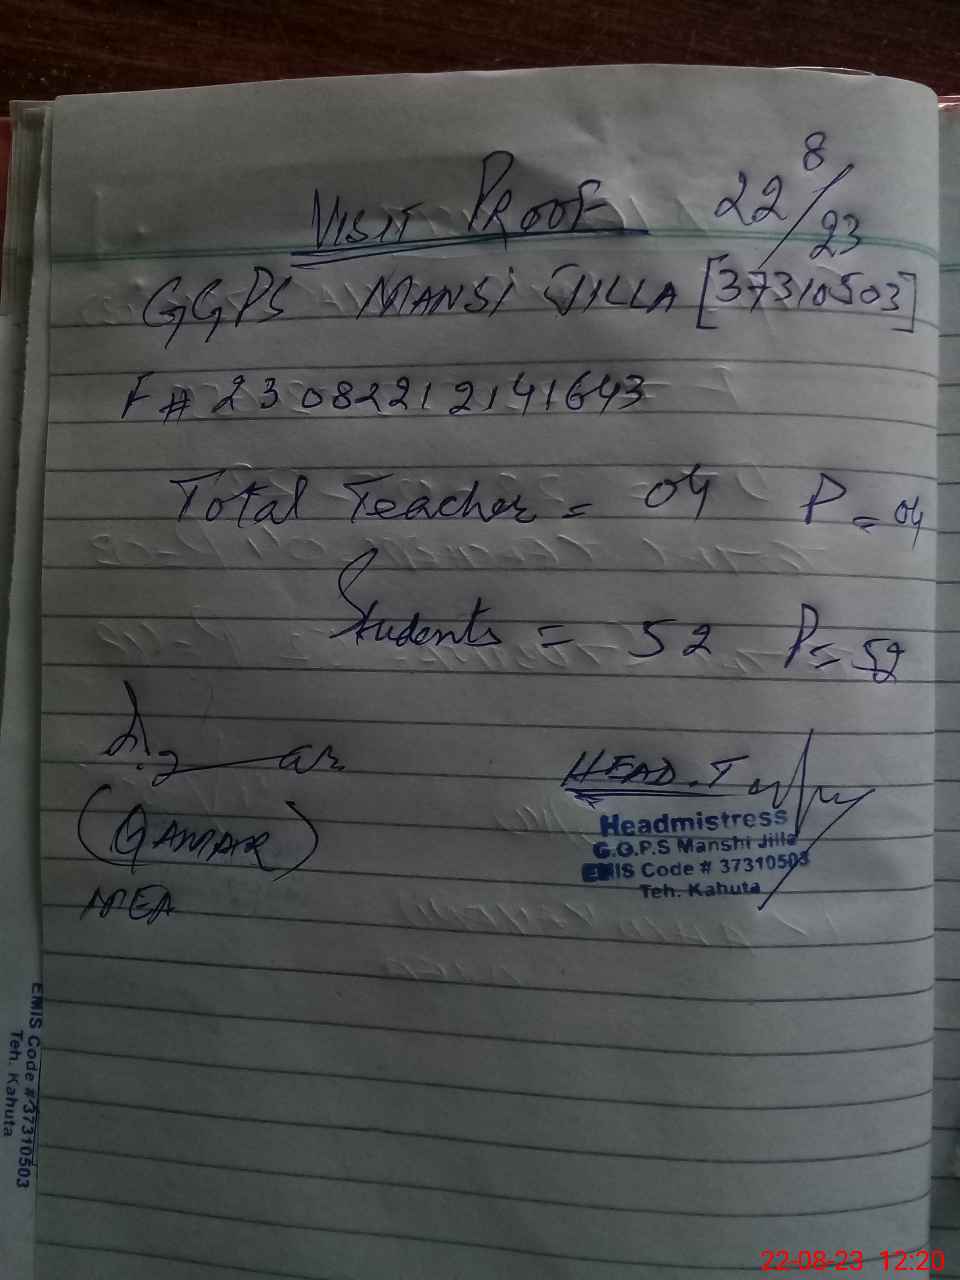 VISIT PROOF 22/8/23
GGPS MANSI JILLA [37310503]
F# 23082212141643
Total Teacher = 04 P = 04
Students = 52 P = 52
HEAD.T
(QAMAR)
MEA
Headmistress
G.G.P.S Manshi Jilla
EMIS Code # 37310503
Teh. Kahuta
EMIS Code # 37310503
Teh. Kahuta
22-08-23 12:20